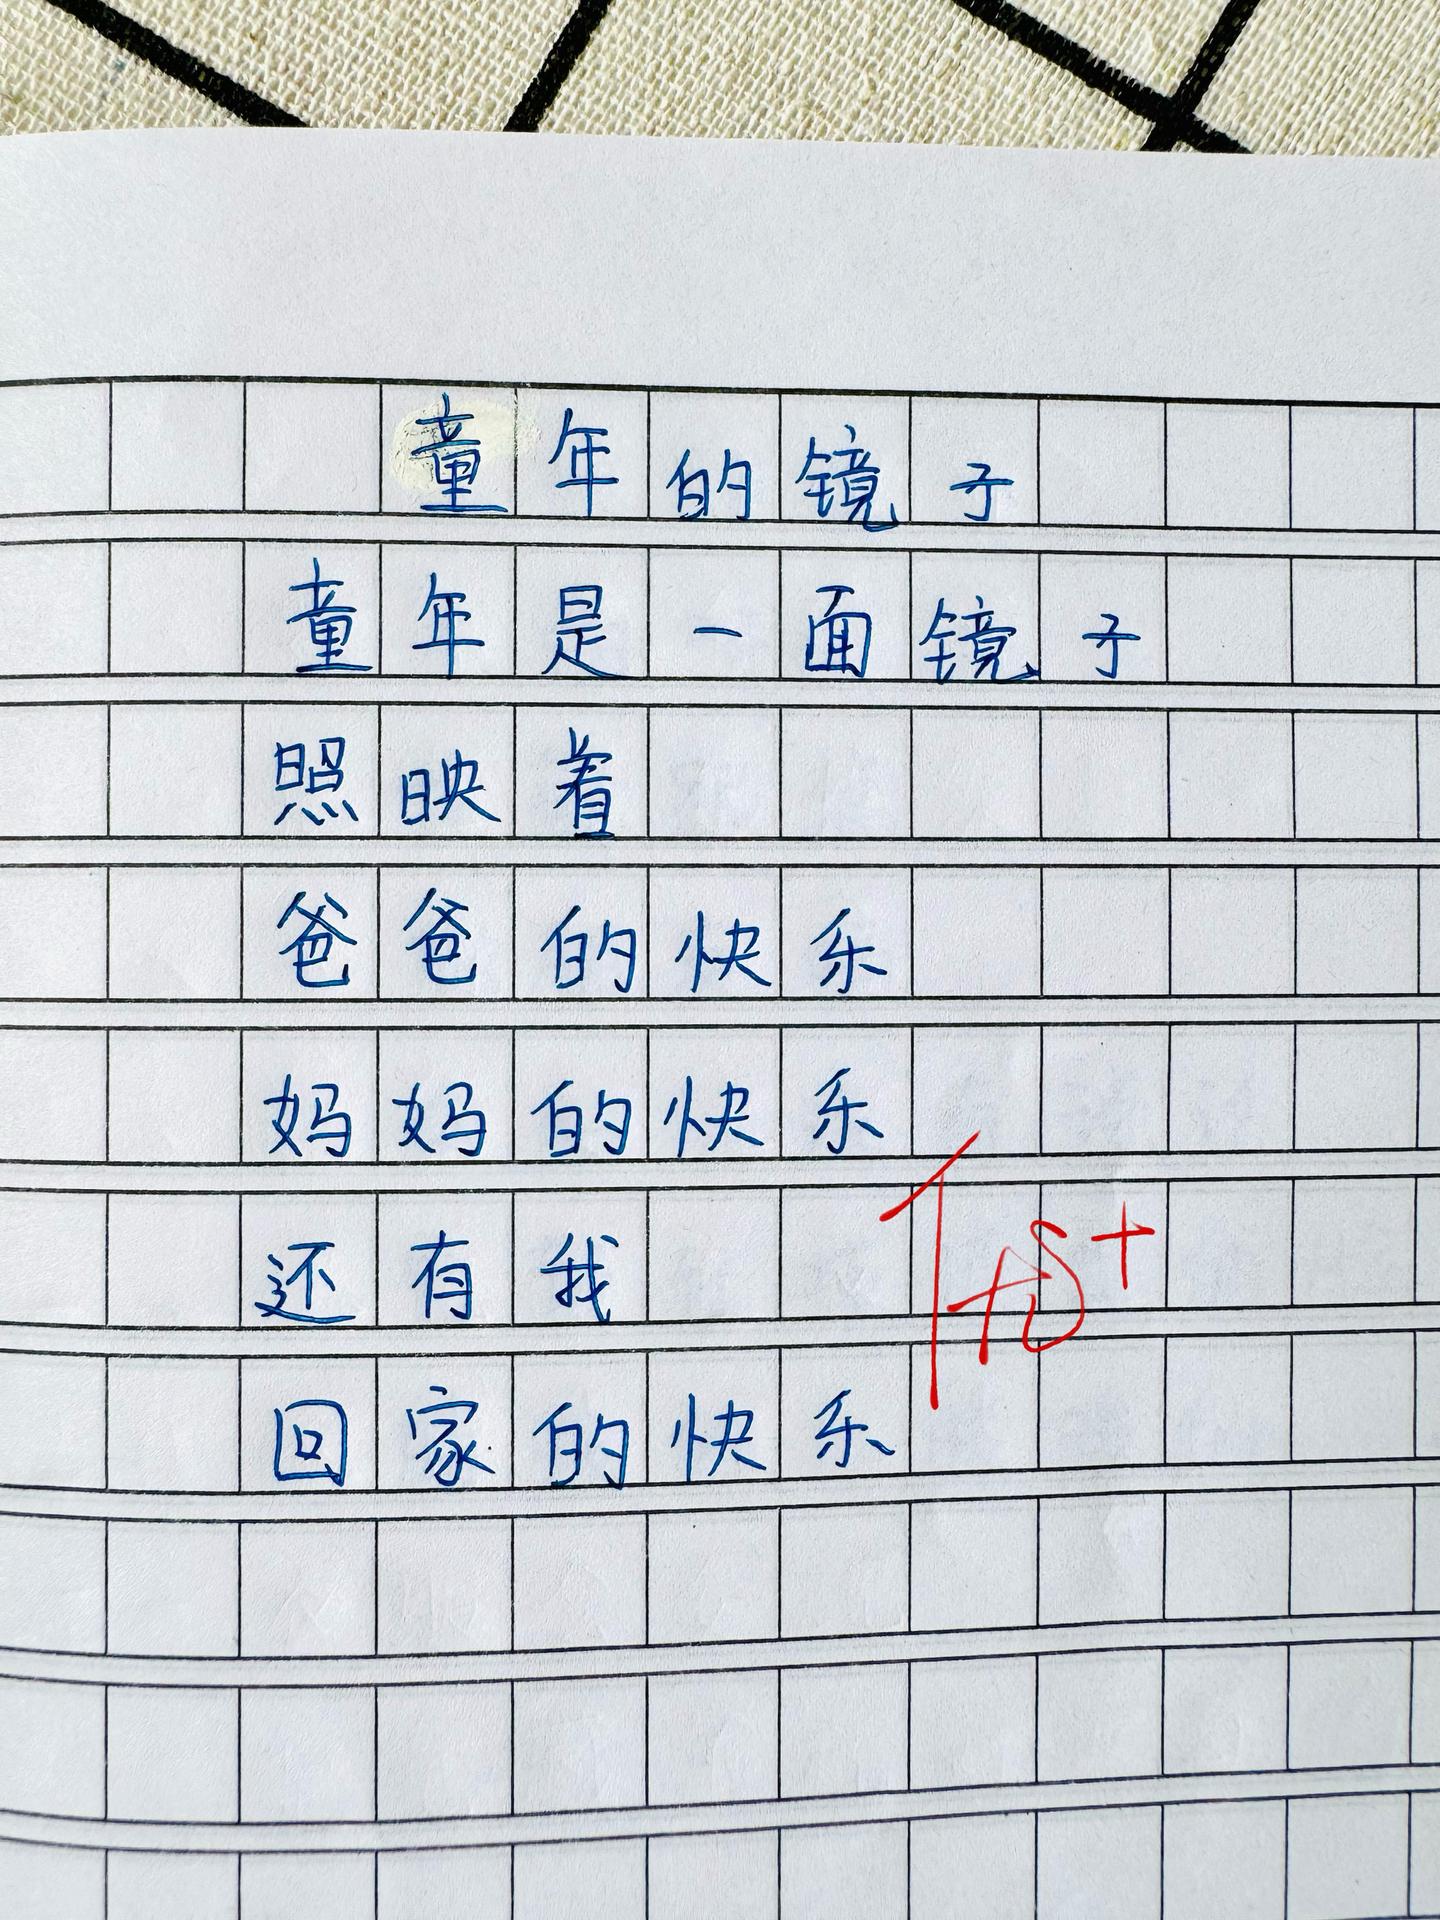 童年的镜子
童年是一面镜子
照映着
爸爸的快乐
妈妈的快乐
还有我
回家的快乐